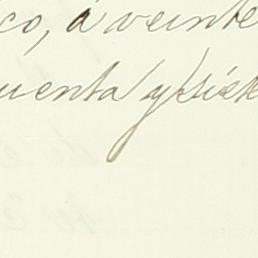 co, á veinte
uenta y siete